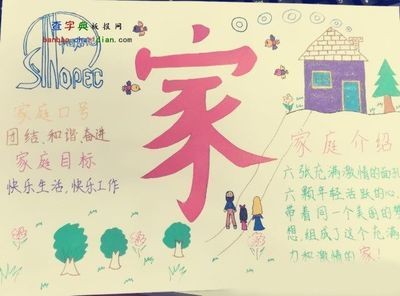 查字典板报网
banbao.chazidian.com
SINOPEC
家
家庭口号
团结、和谐、奋进
家庭目标
快乐生活、快乐工作
家庭介绍
六张充满激情的面孔
六颗年轻活跃的心,
带着同一个美困的梦
想,组成了这个充满
力和激情的家!